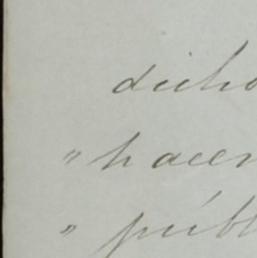 dicho
" hacen
" públ